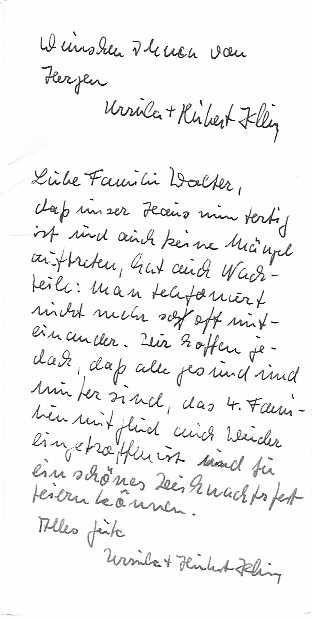 wünschen Ihnen von
Herzen
Ursula + Hubert Klein
Liebe Familie Walter,
daß unser Haus nun fertig
ist und auch keine Mängel
auftreten, hat auch Nach-
teile: man telefoniert
nicht mehr so oft mit-
einander. Wir hoffen je-
doch, daß alle gesund und
munter sind, das 4. Fami-
lienmitglied auch wieder
eingetroffen ist und Sie
ein schönes Weihnachtsfest
feiern können.
Alles Gute
Ursula + Hubert Klein